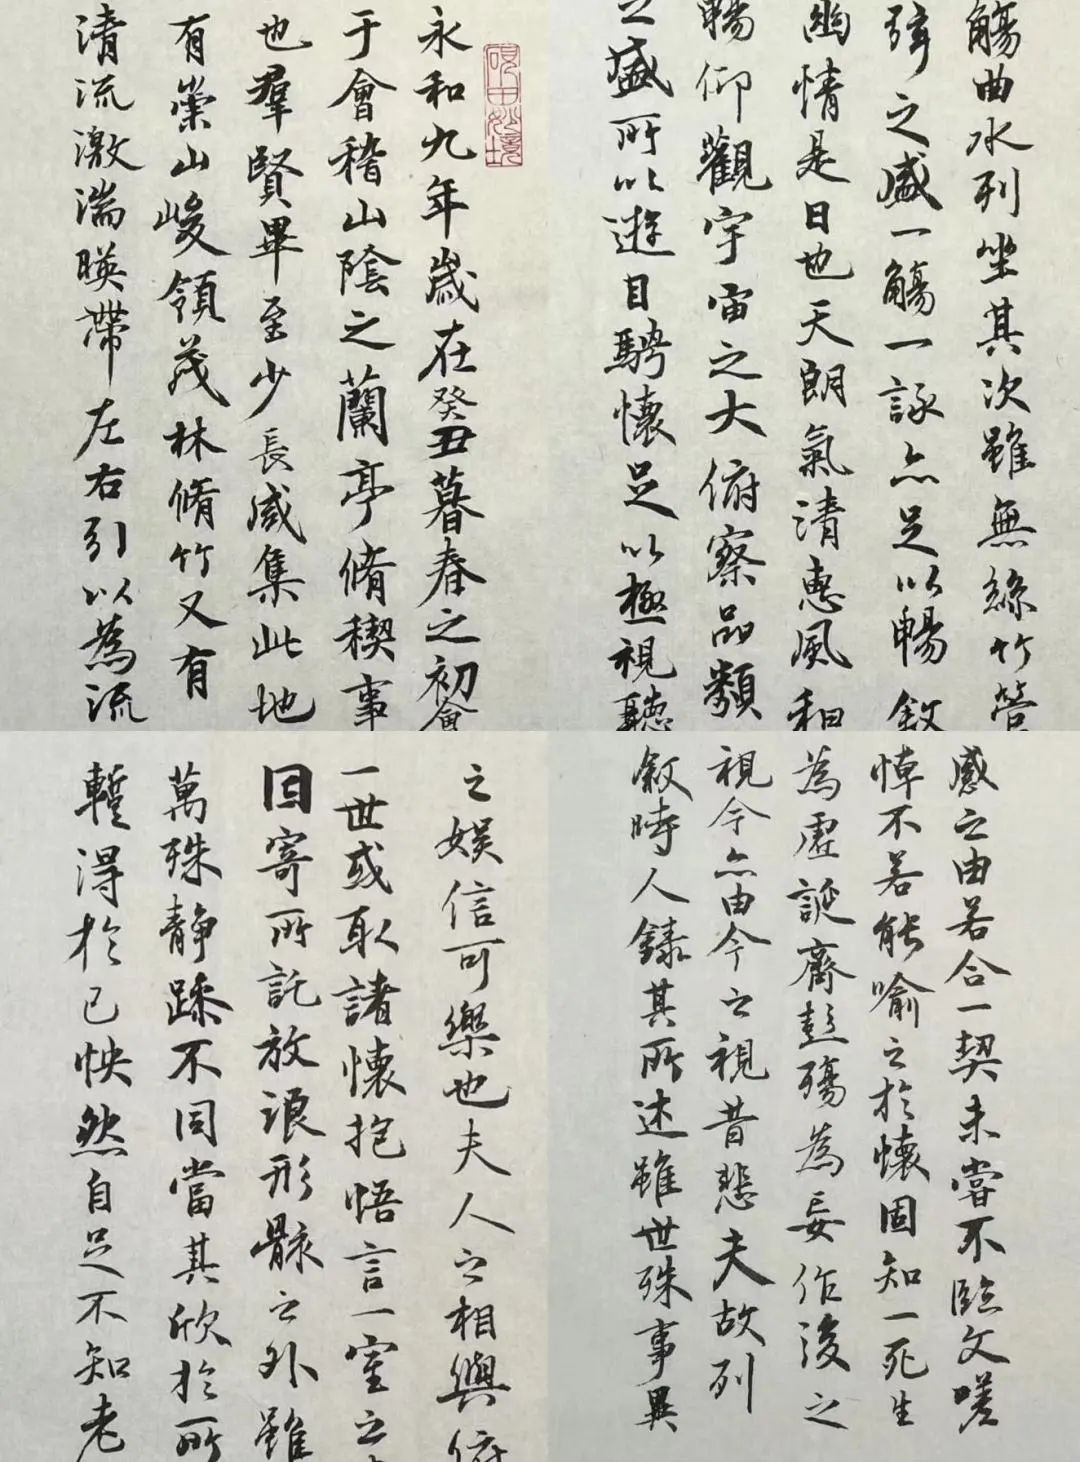 硯田妙境
永和九年歲在癸丑暮春之初會
于會稽山陰之蘭亭脩稧事
也羣賢畢至少長咸集此地
有崇山峻領茂林脩竹又有
清流激湍暎帶左右引以為流
觴曲水列坐其次雖無絲竹管
弦之盛一觴一詠亦足以暢敘
幽情是日也天朗氣清惠風和
暢仰觀宇宙之大俯察品類
之盛所以遊目騁懷足以極視聽
之娛信可樂也夫人之相與俯
一世或取諸懷抱悟言一室之
因寄所託放浪形骸之外雖
萬殊靜躁不同當其欣於所
蹔得於己怏然自足不知老
感之由若合一契未嘗不臨文嗟
悼不若能喻之於懷固知一死生
為虛誕齊彭殤為妄作後之
視今亦由今之視昔悲夫故列
敘時人錄其所述雖世殊事異